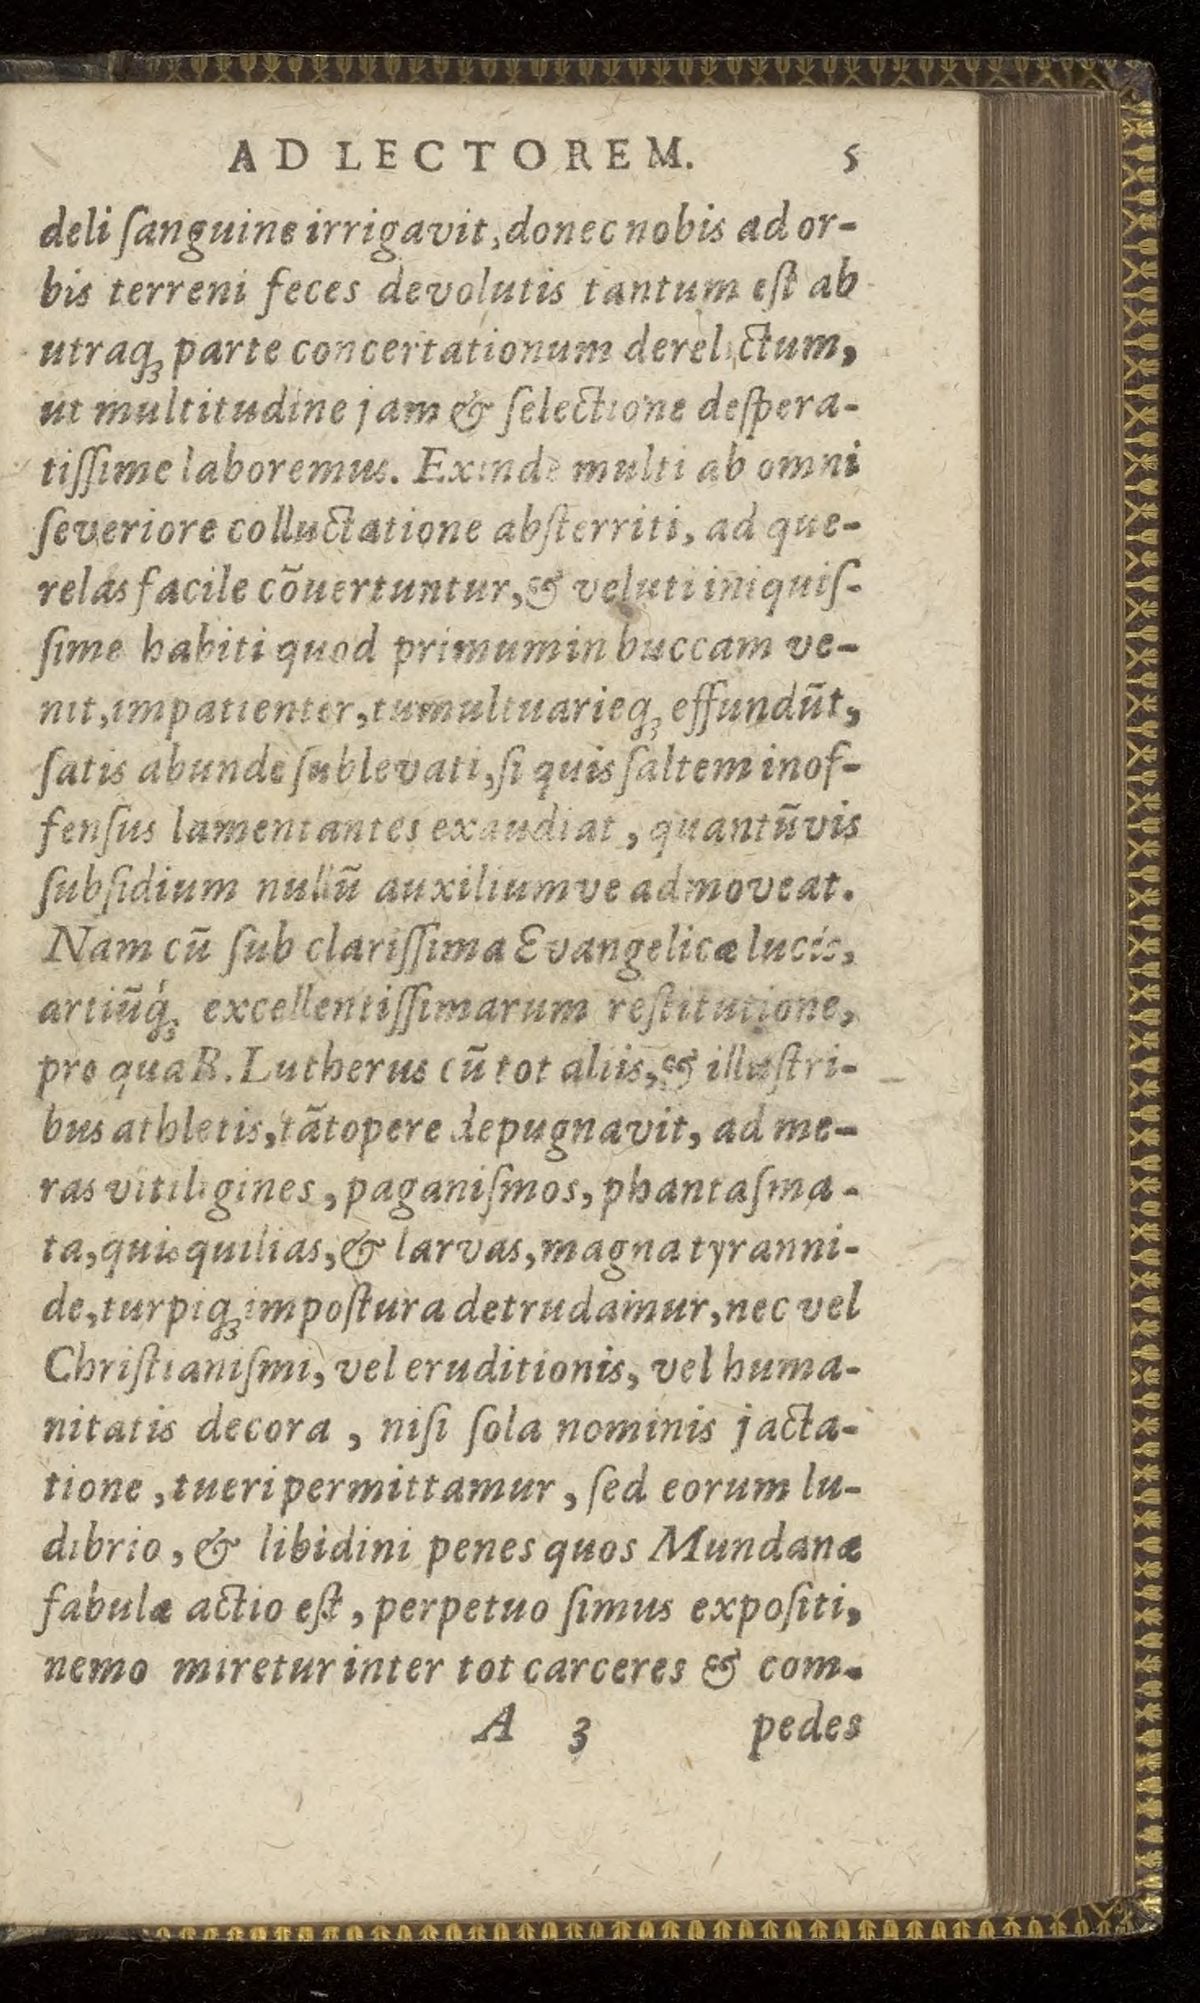 AD LECTOREM. 5
deli ſanguine irrigavit, donec nobis ad or-
bis terreni feces devolutis tantum eſt ab
utraqꝫ parte concertationum derelictum,
ut multitudine jam & ſelectione deſpera-
tiſſime laboremus. Exinde multi ab omni
ſeveriore colluctatione abſterriti, ad que-
relas facile cõuertuntur, & veluti iniquiſ-
ſime habiti quod primum in buccam ve-
nit, impatienter, tumultuarieqꝫ effundũt,
ſatis abunde ſublevati, ſi quis ſaltem inof-
fenſus lamentantes exaudiat, quantũvis
ſubſidium nullũ auxiliumve admoveat.
Nam cũ ſub clariſſima Evangelicæ lucis,
artiũq́ꝫ excellentiſſimarum reſtitutione,
pro qua B. Lutherus cũ tot aliis, & illuſtri-
bus athletis, tãtopere depugnavit, ad me-
ras vitiligines, paganiſmos, phantaſma-
ta, quisquilias, & larvas, magna tyranni-
de, turpiqꝫ impoſtura detrudamur, nec vel
Chriſtianiſmi, vel eruditionis, vel huma-
nitatis decora, niſi ſola nominis jacta-
tione, tueri permittamur, ſed eorum lu-
dibrio, & libidini penes quos Mundanæ
fabulæ actio eſt, perpetuo ſimus expoſiti,
nemo miretur inter tot carceres & com-
A 3 pedes